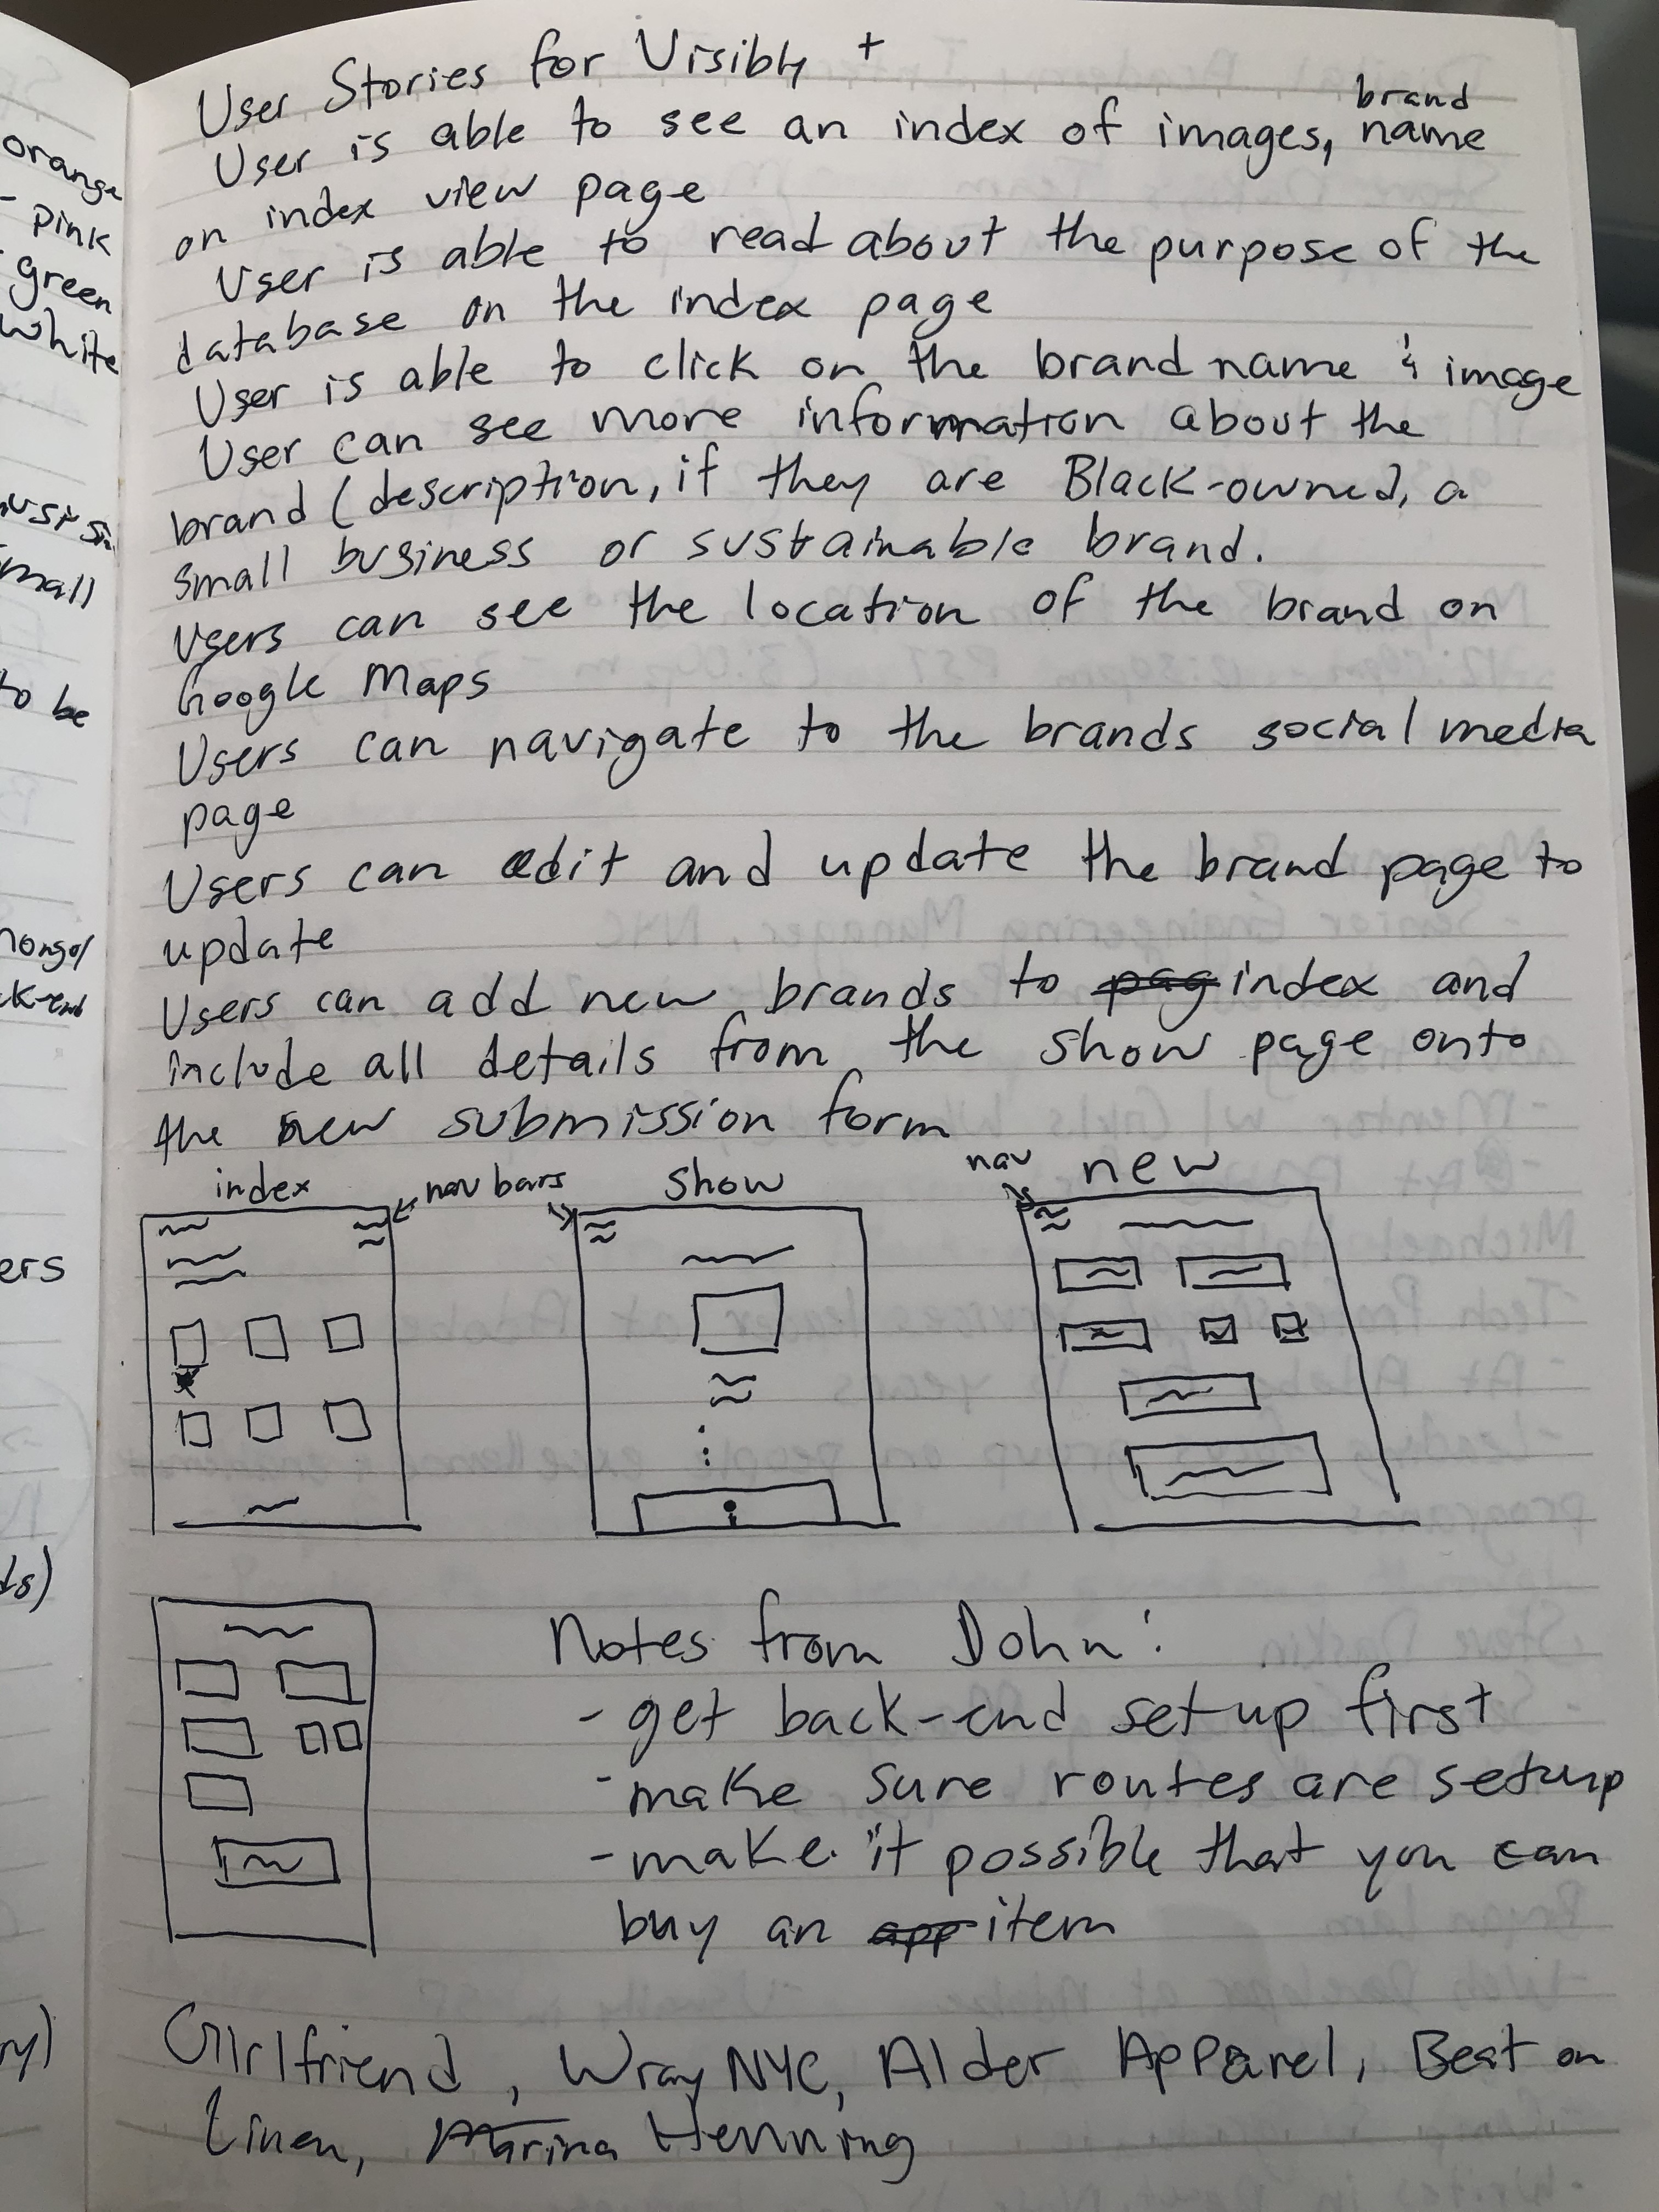 orange
- pink
green
white
small
to be
ers
User Stories for Visibly +
brand
User is able to see an index of images, name
on index view page
User is able to read about the purpose of the
database on the index page
User is able to click on the brand name & image
User can see more information about the
brand (description, if they are Black-owned, a
small business or sustainable brand.
Users can see the location of the brand on
Google Maps
Users can navigate to the brands social media
page
Users can edit and update the brand page to
update
Users can add new brands to pag index and
include all details from the show page onto
the new submission form
index nav bars show nav new
Notes from John:
- get back-end setup first
- make sure routes are setup
- make it possible that you can
buy an app item
Girlfriend, Wray NYC, Alder Apparel, Beat on
Linen, Marina Henning